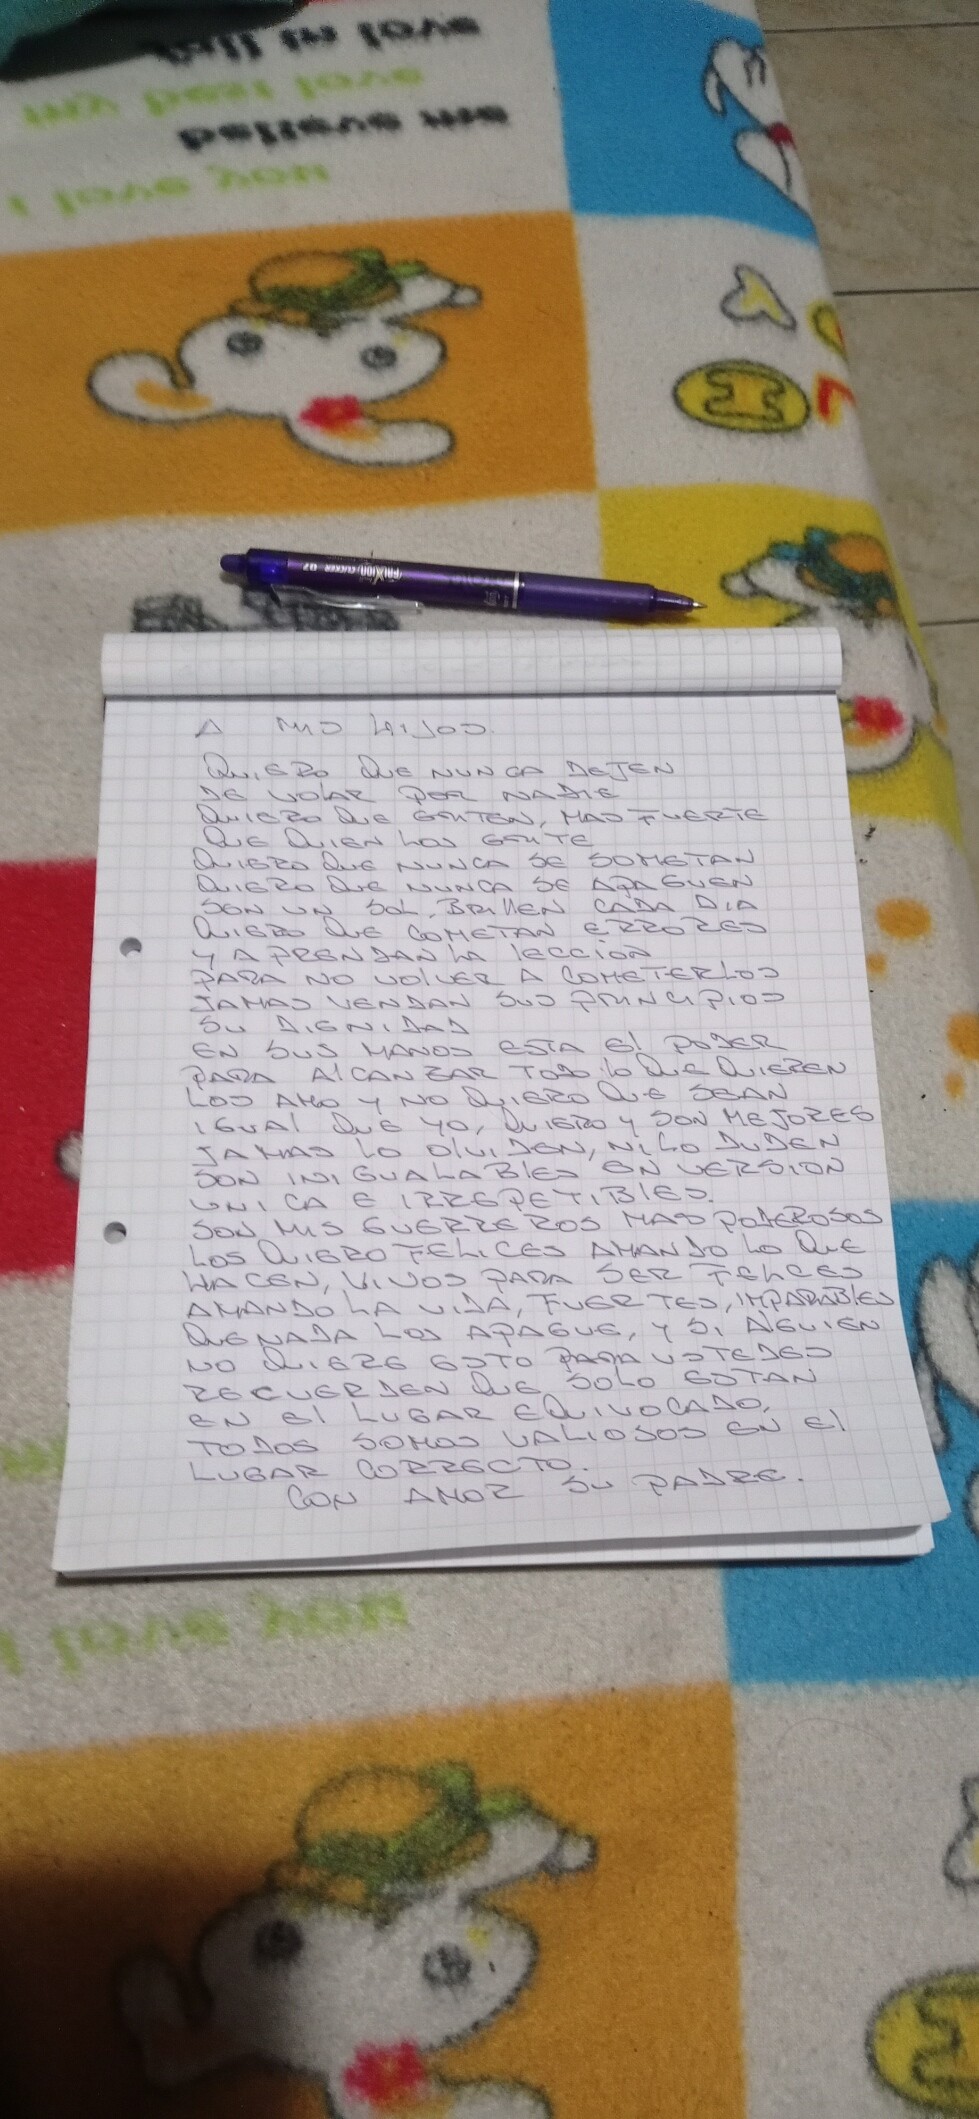 I love you
believe me
love test ymt
love mi ilint
FRIXION CLICKER 07
A MIS HIJOS.
QUIERO QUE NUNCA DEJEN
DE VOLAR POR NADIE
QUIERO QUE GRITEN, MAS FUERTE
QUE QUIEN LOS GRITE
QUIERO QUE NUNCA SE SOMETAN
QUIERO QUE NUNCA SE APAGUEN
SON UN SOL, BRILLEN CADA DIA
QUIERO QUE COMETAN ERRORES
Y APRENDAN LA LECCION
PARA NO VOLVER A COMETERLOS
JAMAS VENDAN SUS PRINCIPIOS
SU DIGNIDAD
EN SUS MANOS ESTA El PODER
PARA AlCANZAR TODO lo QUE QUIEREN
LOS AMO Y NO QUIERO QUE SEAN
IGUAl QUE YO, QUIERO Y SON MEJORES
JAMAS LO OlVIDEN, NI LO DUDEN
SON INIGUALABLES EN VERSION
UNICA E IRREPETIBLES.
SON MIS GUERREROS MAS PODEROSOS
LOS QUIERO FELICES AMANDO LO QUE
HACEN, VIVOS PARA SER FELICES
AMANDO LA VIDA, FUERTES, IMPARABLES
QUE NADA LOS APAGUE, Y SI AlGUIEN
NO QUIERE ESTO PARA USTEDES
RECUERDEN QUE SOLO ESTAN
EN El LUGAR EQUIVOCADO,
TODOS SOMOS VALIOSOS EN El
LUGAR CORRECTO.
CON AMOR SU PADRE.
I love you